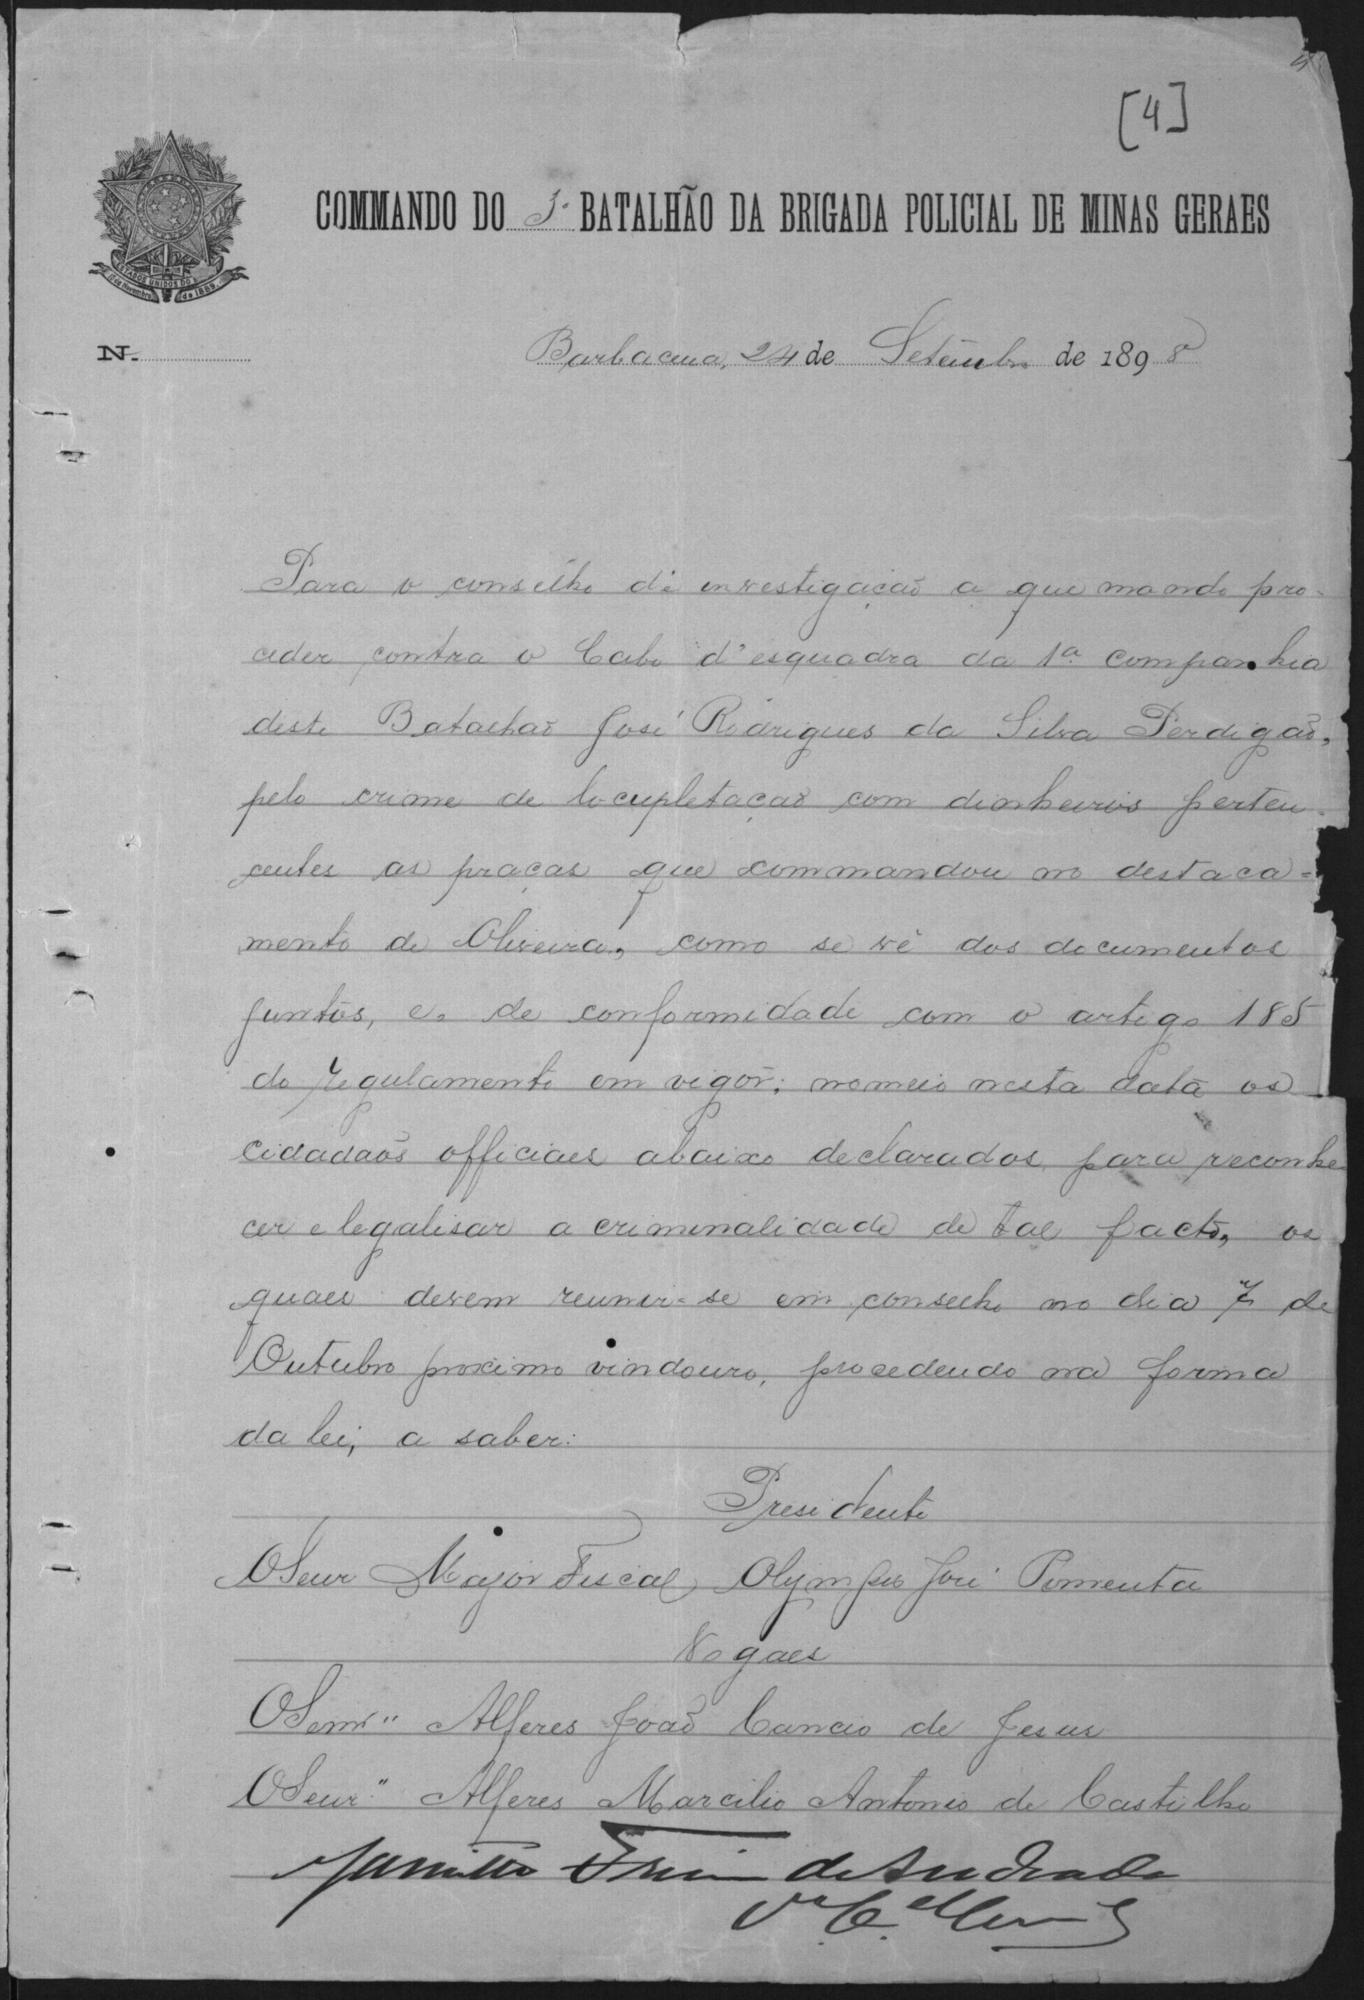 4
[4]
COMMANDO DO 3º BATALHÃO DA BRIGADA POLICIAL DE MINAS GERAES
ESTADOS UNIDOS DO
15 de Novembro de 1889.
N.
Barbacena, 24 de Setembro de 1898
Para o conselho de investigação a que mando pro-
ceder contra o Cabo d'esquadra da 1ª companhia
deste Batalhão José Rodrigues da Silva Perdigão,
pelo crime de locupletação com dinheiros perten-
centes as praças que commandou no destaca=
mento de Oliveira, como se vê dos documentos
juntos, e de conformidade com o artigo 185
do regulamento em vigor; nomeio nesta data os
cidadãos officiaes abaixo declarados, para reconhe
cer e legalisar a criminalidade de tal facto, os
quaes devem reunir-se em conselho no dia 7 de
Outubro proximo vindouro, procedendo na forma
da lei, a saber:
Presidente
O Senr Major Fiscal, Olympio José Pimenta
Vogaes
O Senr" Alferes João Cancio de Jesus
O Senr" Alferes Marcilio Antonio de Castilho
de Andrade